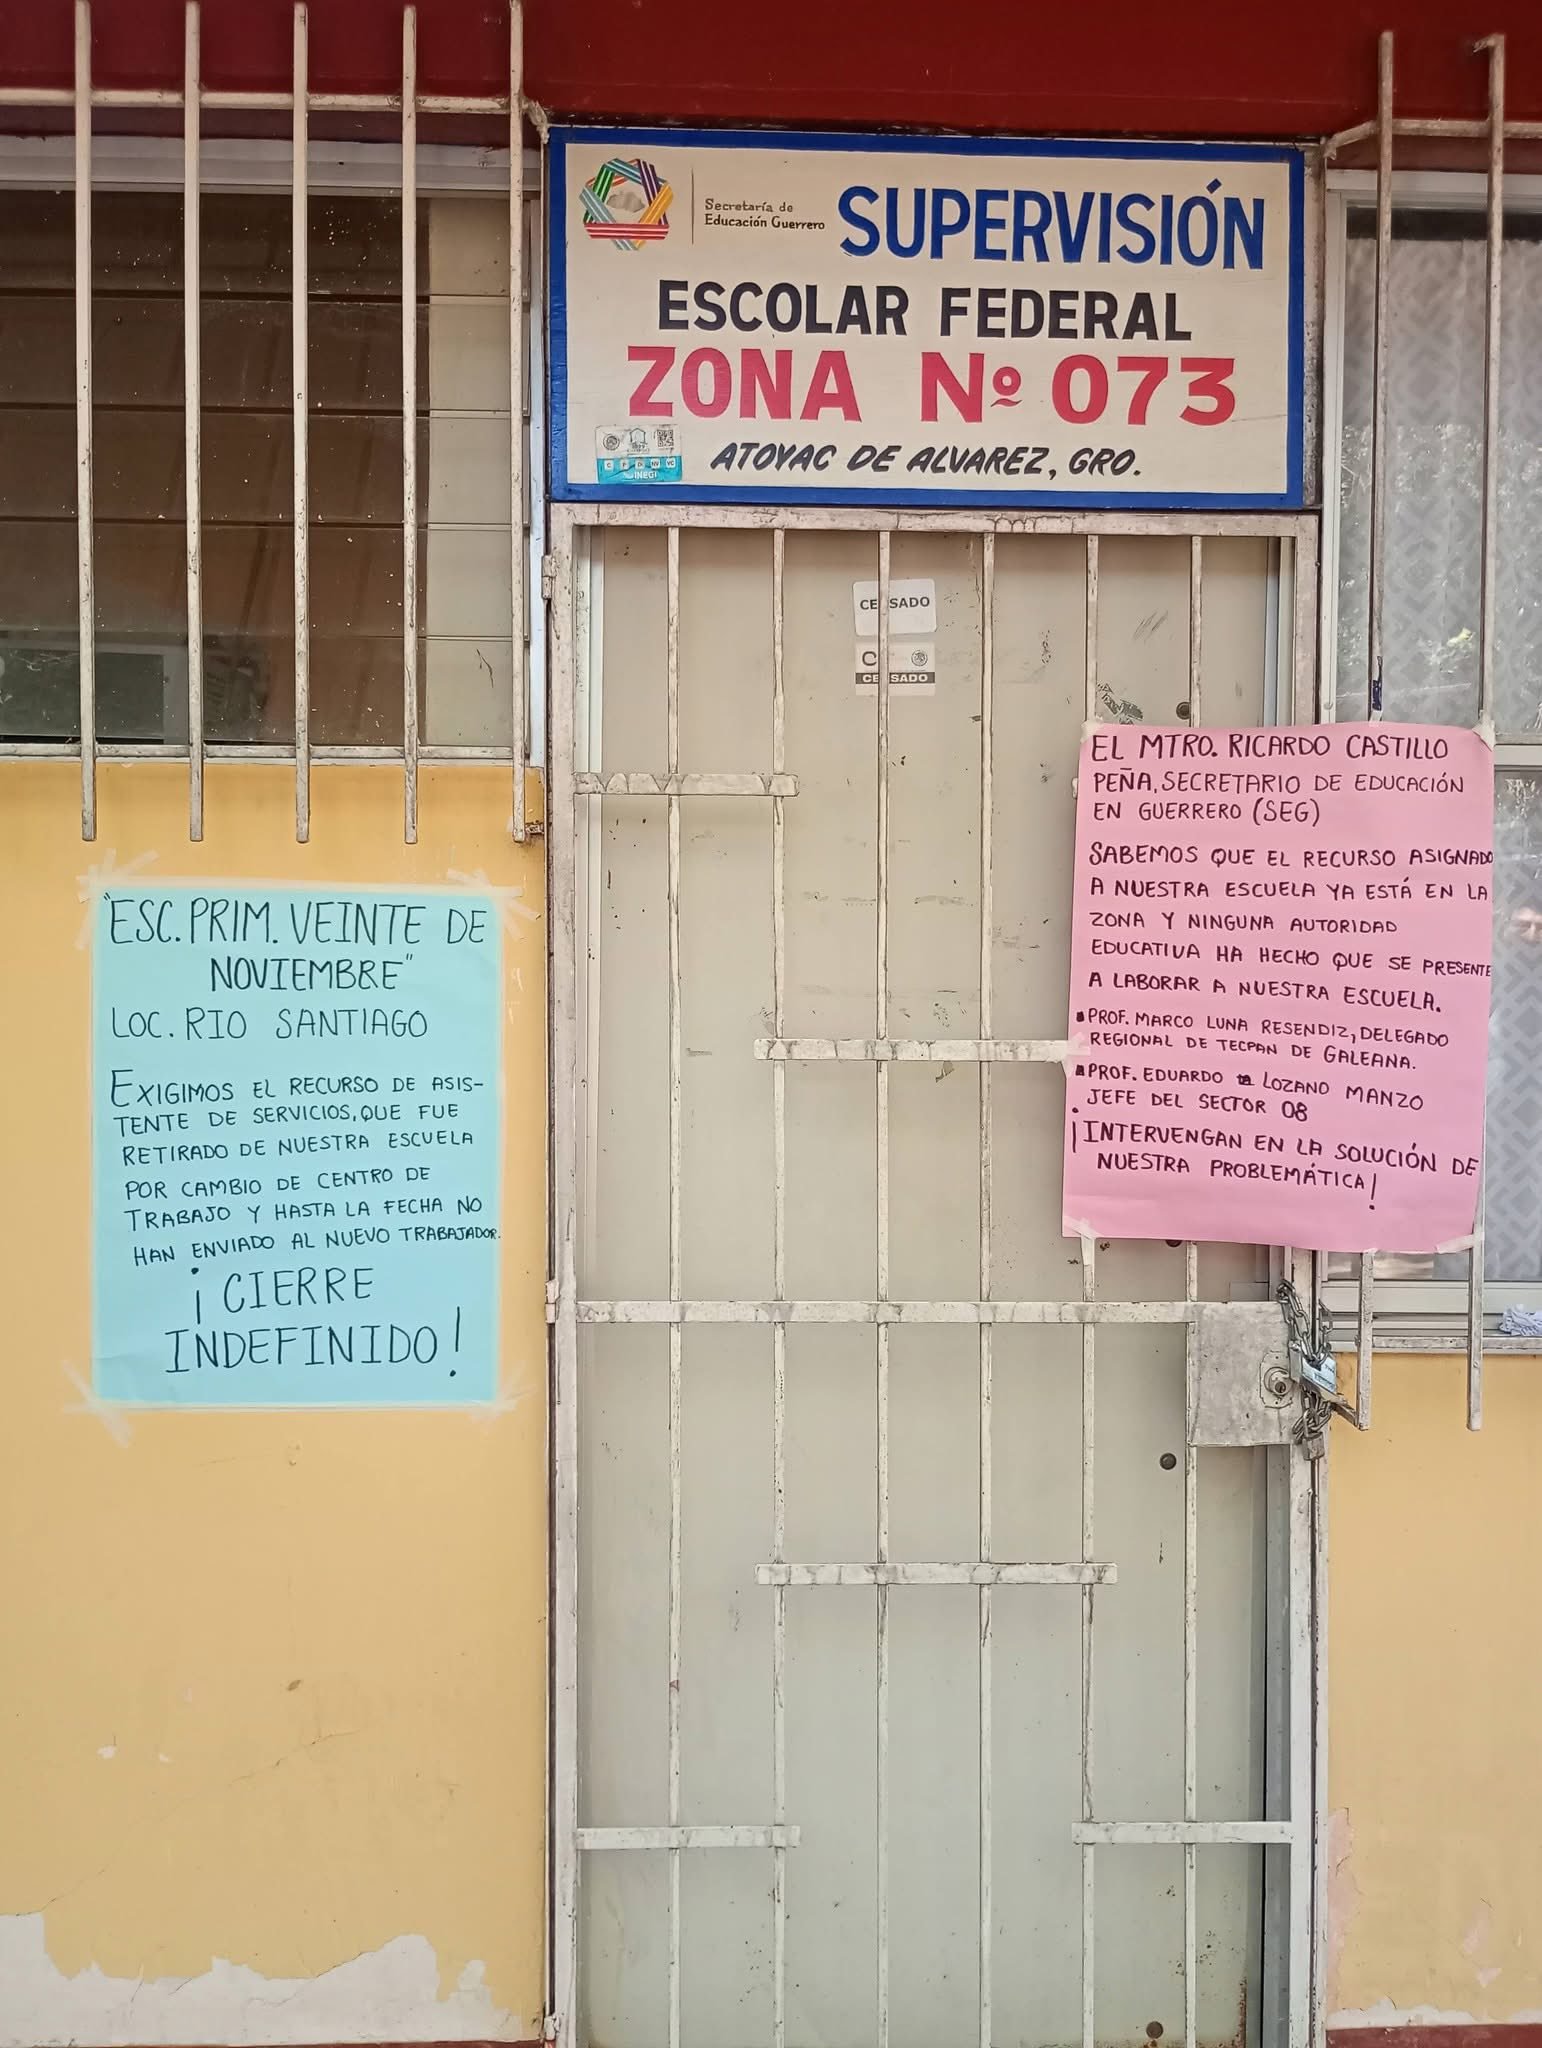 Secretaría de
Educación Guerrero
SUPERVISIÓN
ESCOLAR FEDERAL
ZONA Nº 073
ATOYAC DE ALVAREZ, GRO.
INEGI
CENSADO
CENSADO
"ESC. PRIM. VEINTE DE
NOVIEMBRE"
LOC. RIO SANTIAGO
EXIGIMOS EL RECURSO DE ASIS-
TENTE DE SERVICIOS, QUE FUE
RETIRADO DE NUESTRA ESCUELA
POR CAMBIO DE CENTRO DE
TRABAJO Y HASTA LA FECHA NO
HAN ENVIADO AL NUEVO TRABAJADOR.
¡CIERRE
INDEFINIDO!
EL MTRO. RICARDO CASTILLO
PEÑA, SECRETARIO DE EDUCACIÓN
EN GUERRERO (SEG)
SABEMOS QUE EL RECURSO ASIGNADO
A NUESTRA ESCUELA YA ESTÁ EN LA
ZONA Y NINGUNA AUTORIDAD
EDUCATIVA HA HECHO QUE SE PRESENTE
A LABORAR A NUESTRA ESCUELA.
▪PROF. MARCO LUNA RESENDIZ, DELEGADO
REGIONAL DE TECPAN DE GALEANA.
▪PROF. EDUARDO LOZANO MANZO
JEFE DEL SECTOR 08
¡INTERVENGAN EN LA SOLUCIÓN DE
NUESTRA PROBLEMÁTICA!